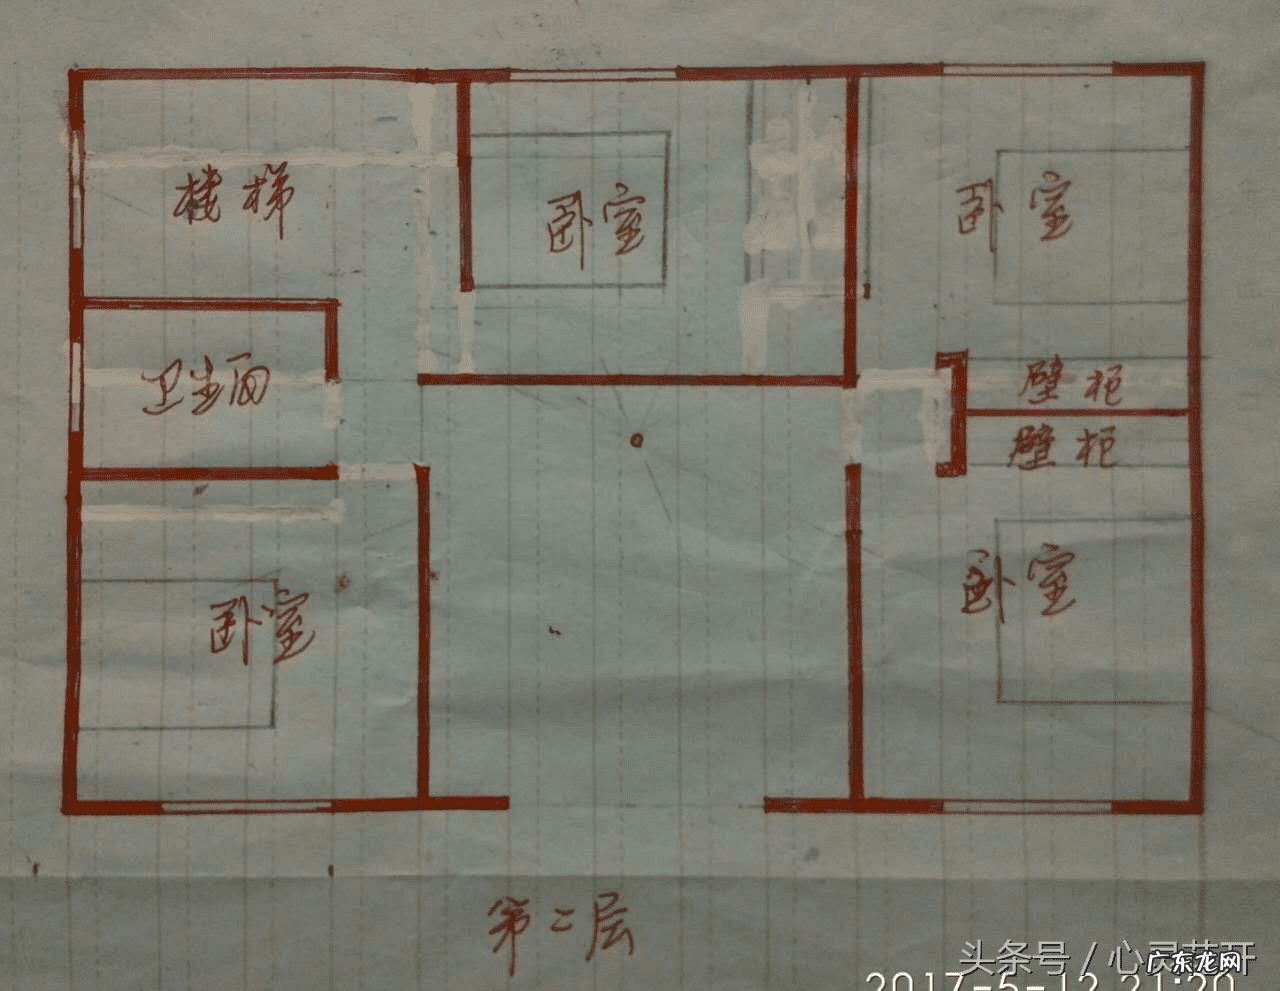 楼梯
卧室
卧室
卫生间
壁柜
壁柜
卧室
卧室
第二层
头条号 / 心灵花开
广东龙网
2017-5-12 21:20